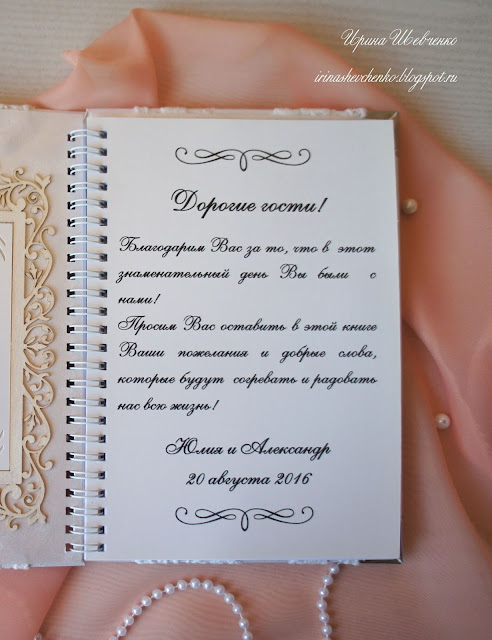 Ирина Шевченко
irinashevchenko.blogspot.ru
Дорогие гости!
Благодарим Вас за то, что в этот
знаменательный день Вы были с
нами!
Просим Вас оставить в этой книге
Ваши пожелания и добрые слова,
которые будут согревать и радовать
нас всю жизнь!
Юлия и Александр
20 августа 2016